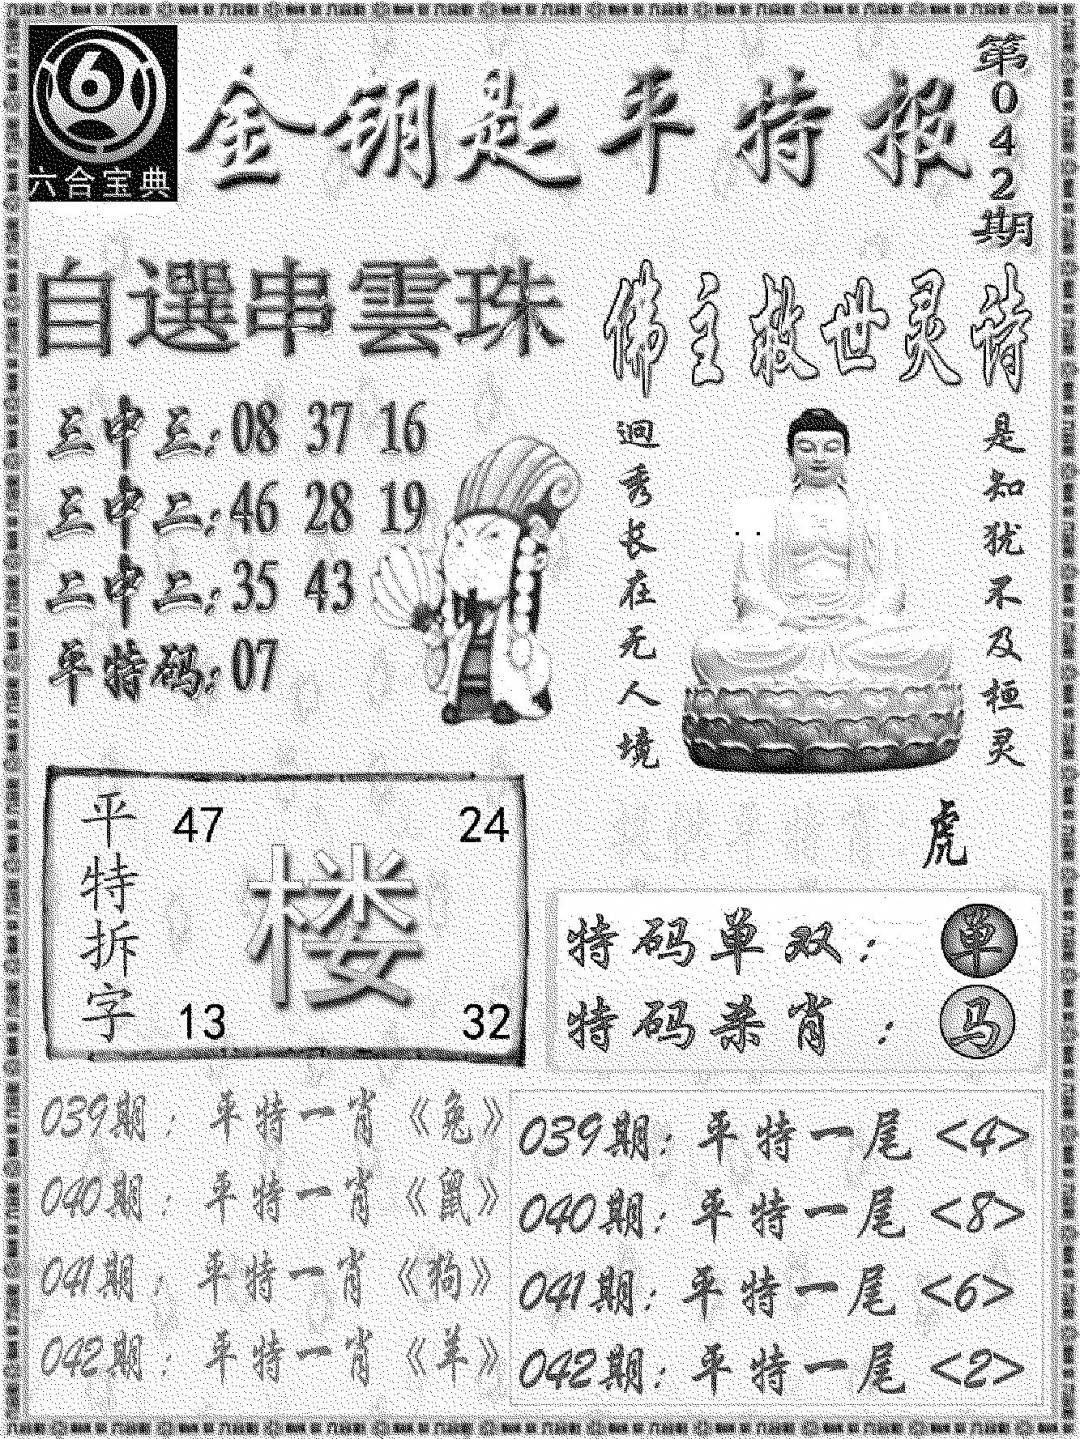 六合宝典
金钥匙平特报
第042期
自選串雲珠
三中三:08 37 16
三中二:46 28 19
二中二:35 43
平特码:07
佛主救世灵诗
是知犹不及桓灵
迥秀长在无人境
虎
平特拆字
47 24
楼
13 32
特码单双: 单
特码杀肖: 马
039期: 平特一肖《兔》
040期: 平特一肖《鼠》
041期: 平特一肖《狗》
042期: 平特一肖《羊》
039期: 平特一尾 <4>
040期: 平特一尾 <8>
041期: 平特一尾 <6>
042期: 平特一尾 <2>